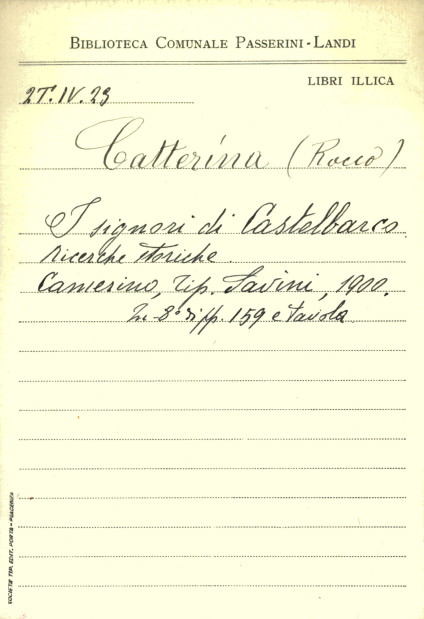 BIBLIOTECA COMUNALE PASSERINI-LANDI
LIBRI ILLICA
2T.IV.23
Catterina (Rocco)
I signori di Castelbarco
ricerche storiche.
Camerino, tip. Savini, 1900.
In 8° di pp. 159 e tavola
SOCIETÀ TIP. EDIT. PORTA - PIACENZA